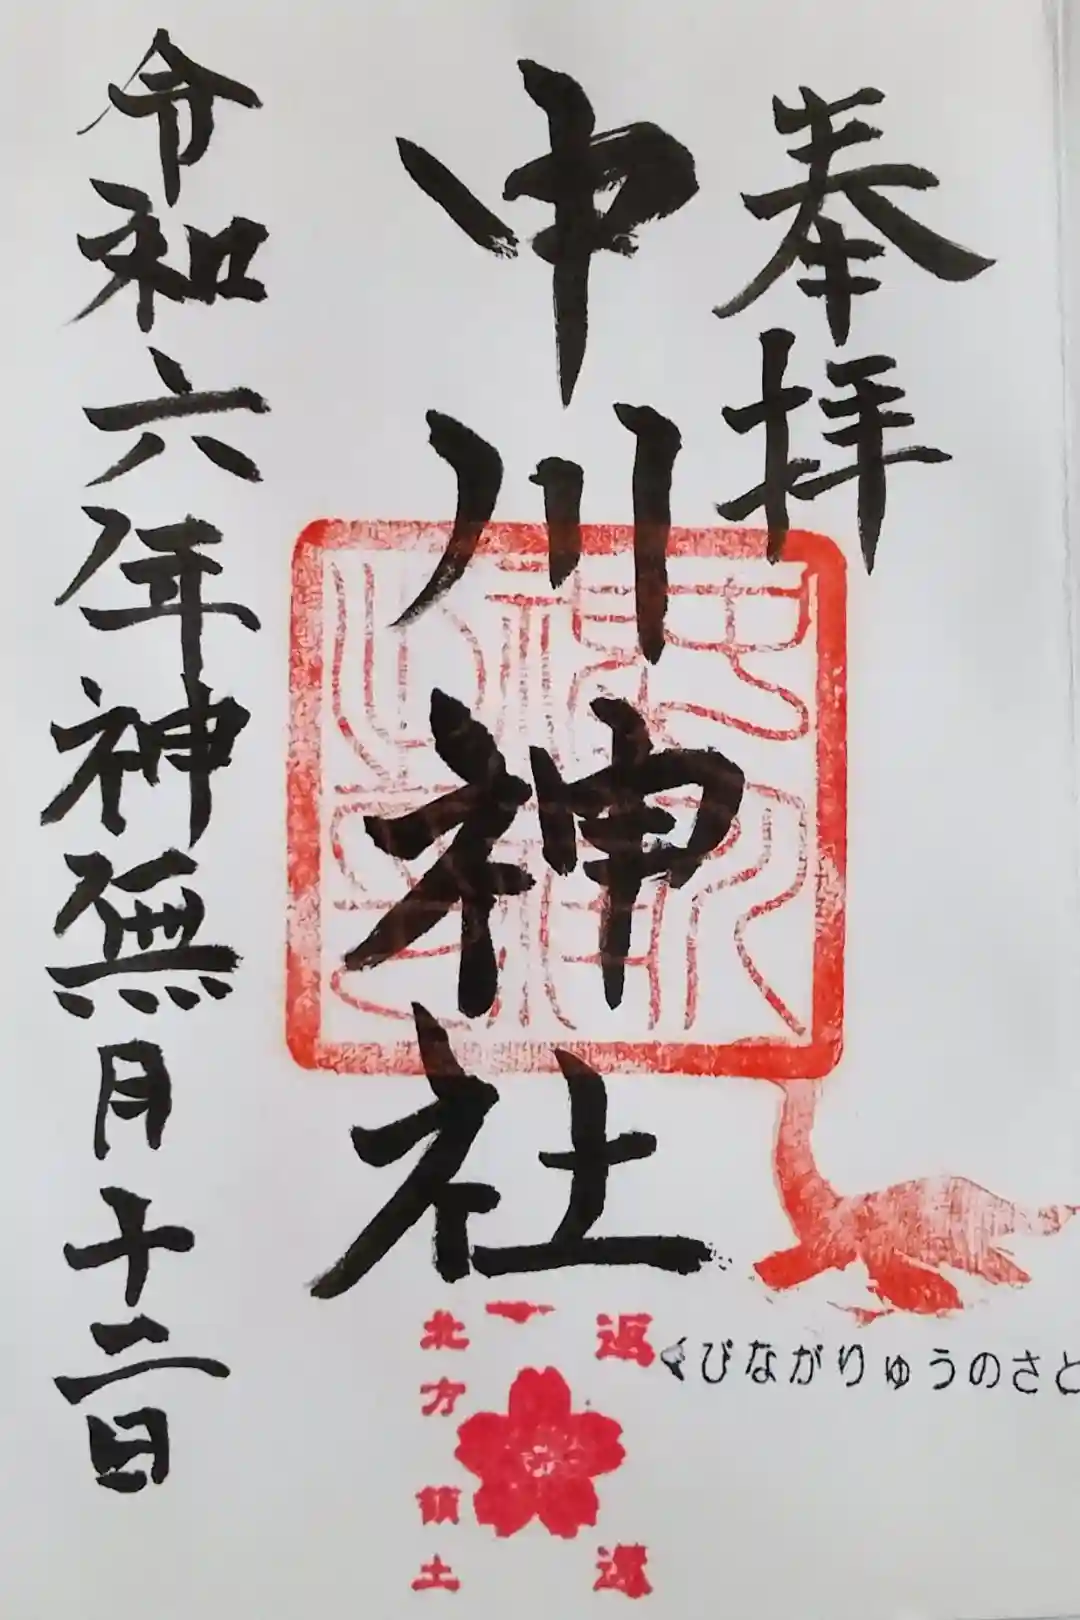 奉拝
中川神社
令和六年神無月十二日
くびながりゅうのさと
返還
北方領土